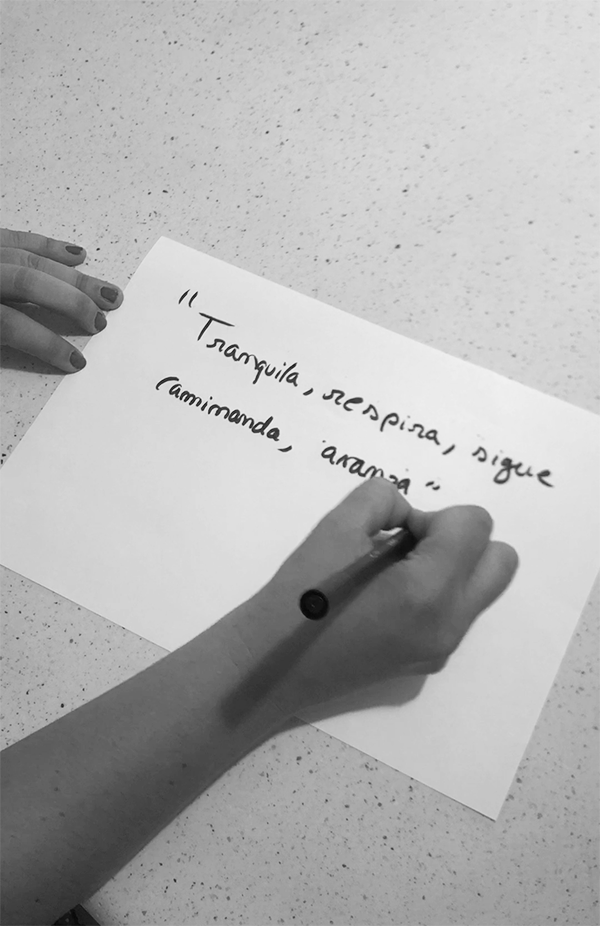 "Tranquila, respira, sigue
caminando, avanza"